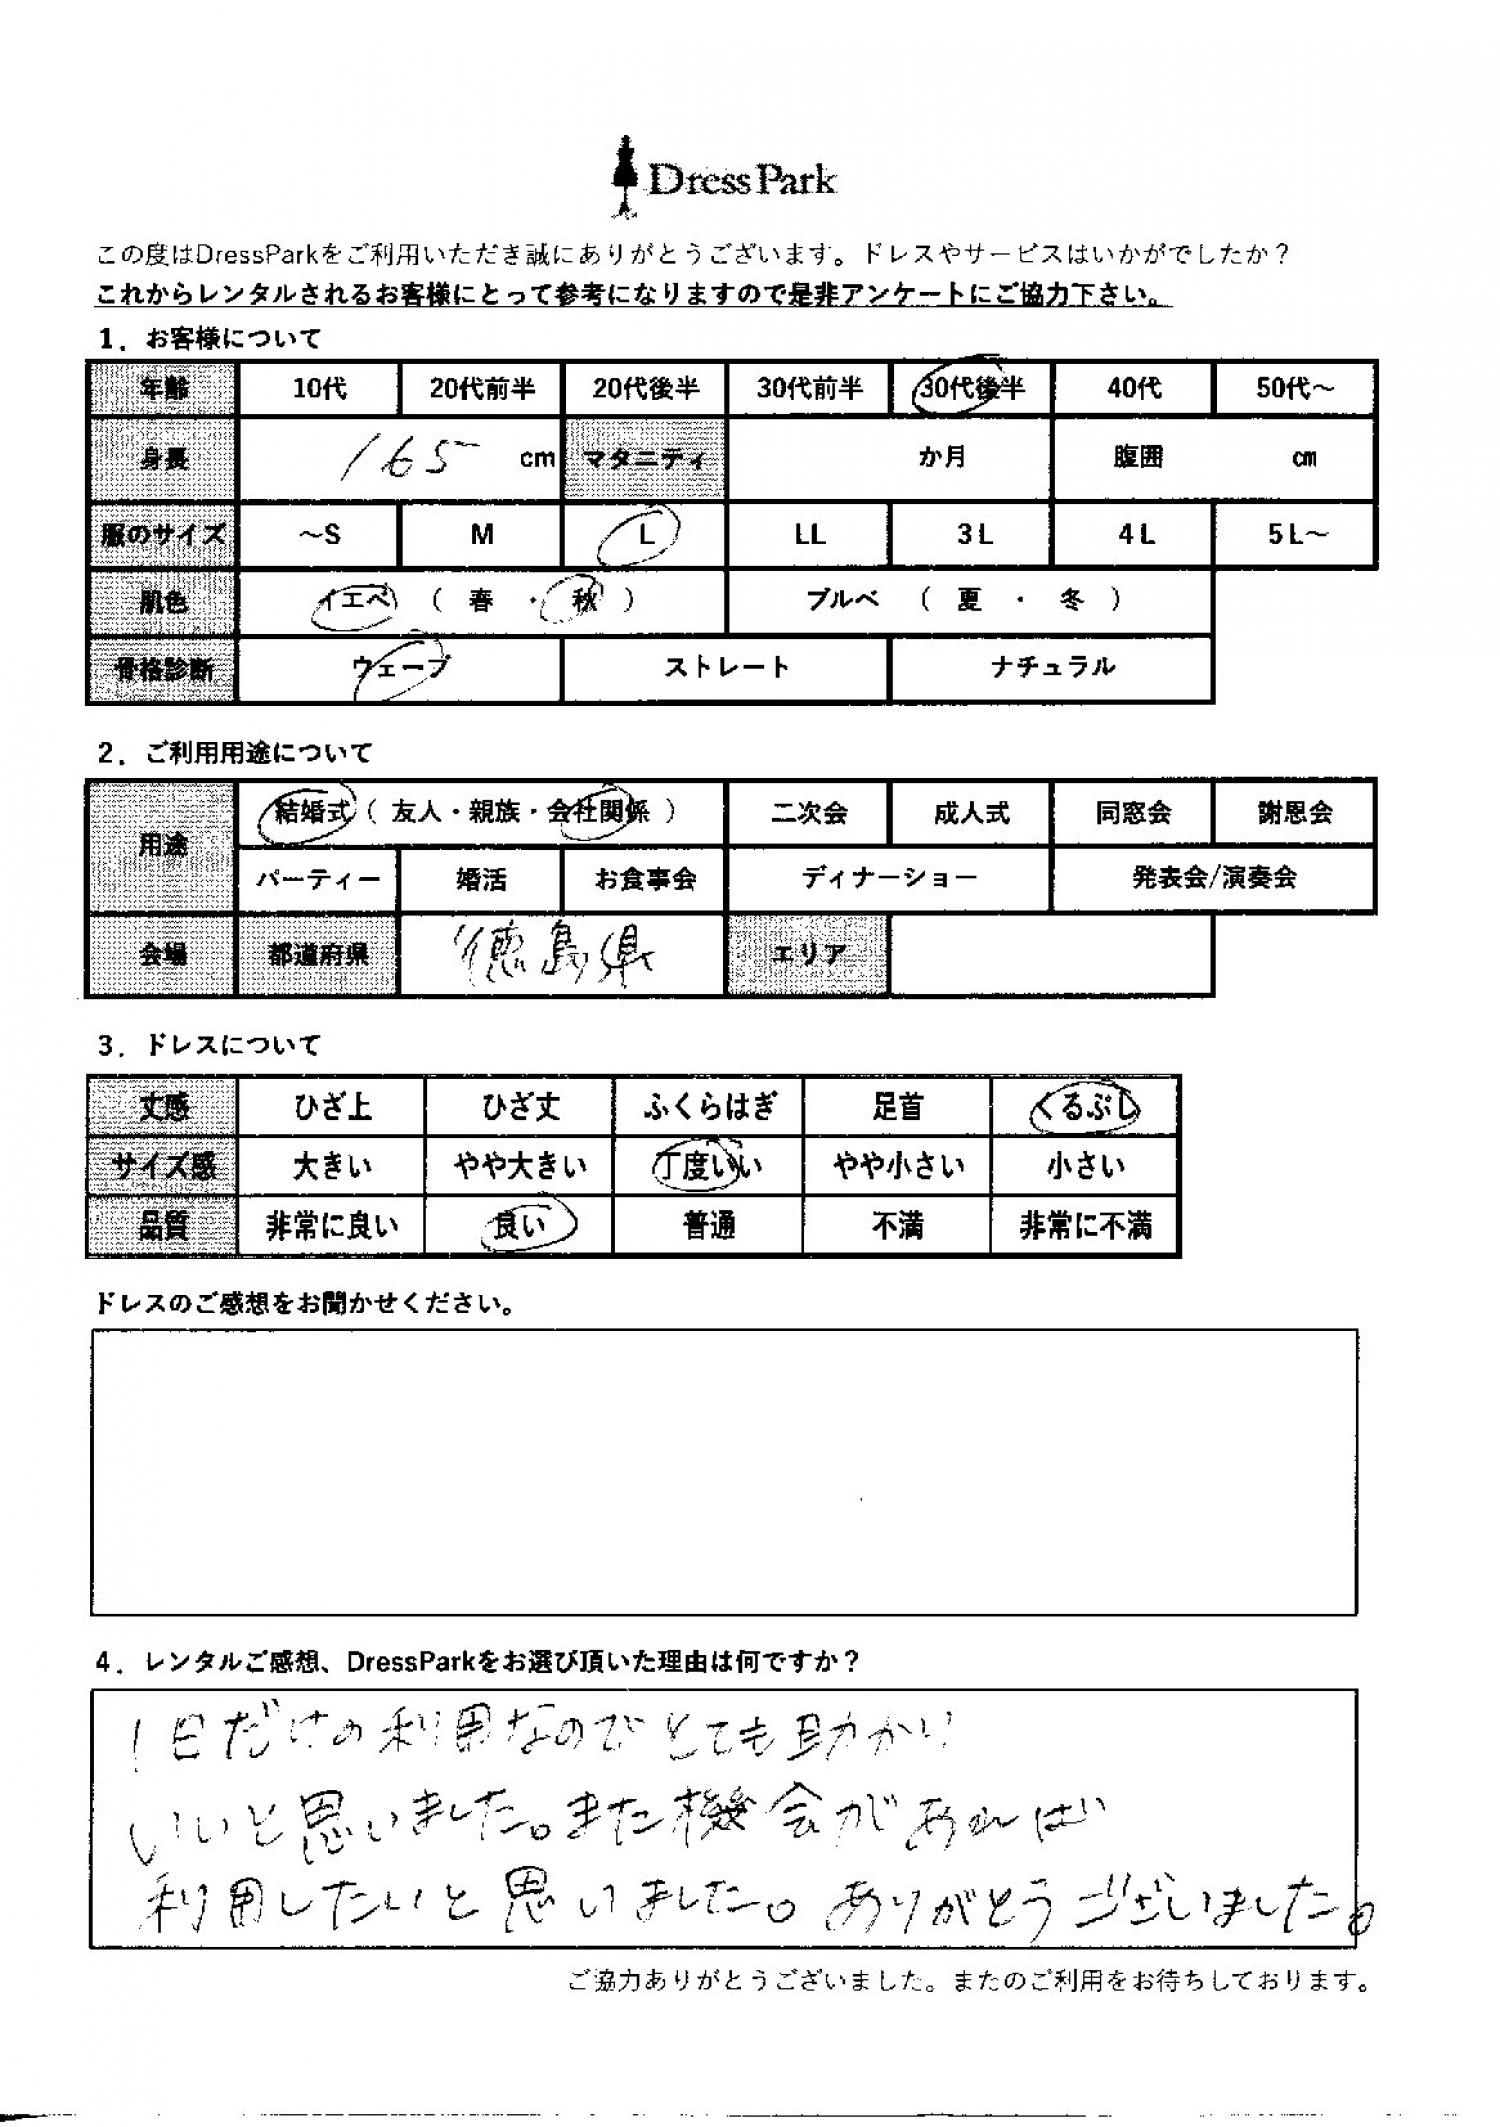 DressPark
この度はDressParkをご利用いただき誠にありがとうございます。ドレスやサービスはいかがでしたか？
これからレンタルされるお客様にとって参考になりますので是非アンケートにご協力下さい。
1．お客様について
年齢 10代 20代前半 20代後半 30代前半 30代後半 40代 50代～
身長 165 cm マタニティ か月 腹囲 cm
服のサイズ ～S M L LL 3L 4L 5L～
肌色 イエベ （ 春 ・ 秋 ） ブルベ （ 夏 ・ 冬 ）
骨格診断 ウェーブ ストレート ナチュラル
2．ご利用用途について
用途 結婚式（ 友人・親族・会社関係 ） 二次会 成人式 同窓会 謝恩会
パーティー 婚活 お食事会 ディナーショー 発表会/演奏会
会場 都道府県 徳島県 エリア
3．ドレスについて
丈感 ひざ上 ひざ丈 ふくらはぎ 足首 くるぶし
サイズ感 大きい やや大きい 丁度いい やや小さい 小さい
品質 非常に良い 良い 普通 不満 非常に不満
ドレスのご感想をお聞かせください。
4．レンタルご感想、DressParkをお選び頂いた理由は何ですか？
1日だけの利用なのでとても助かり
いいと思いました。また機会があれば
利用したいと思いました。ありがとうございました。
ご協力ありがとうございました。またのご利用をお待ちしております。